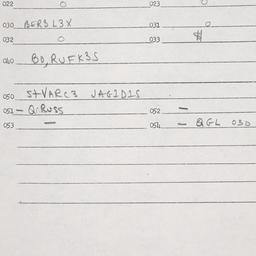 022 0 023 0
030 BERSL3X 031 0
032 0 033 #
040 BD,RUFK3S
050 StVARC3 JAGIDIS
051 - Q:RUSS 052 -
053 - 054 - QGL 03D